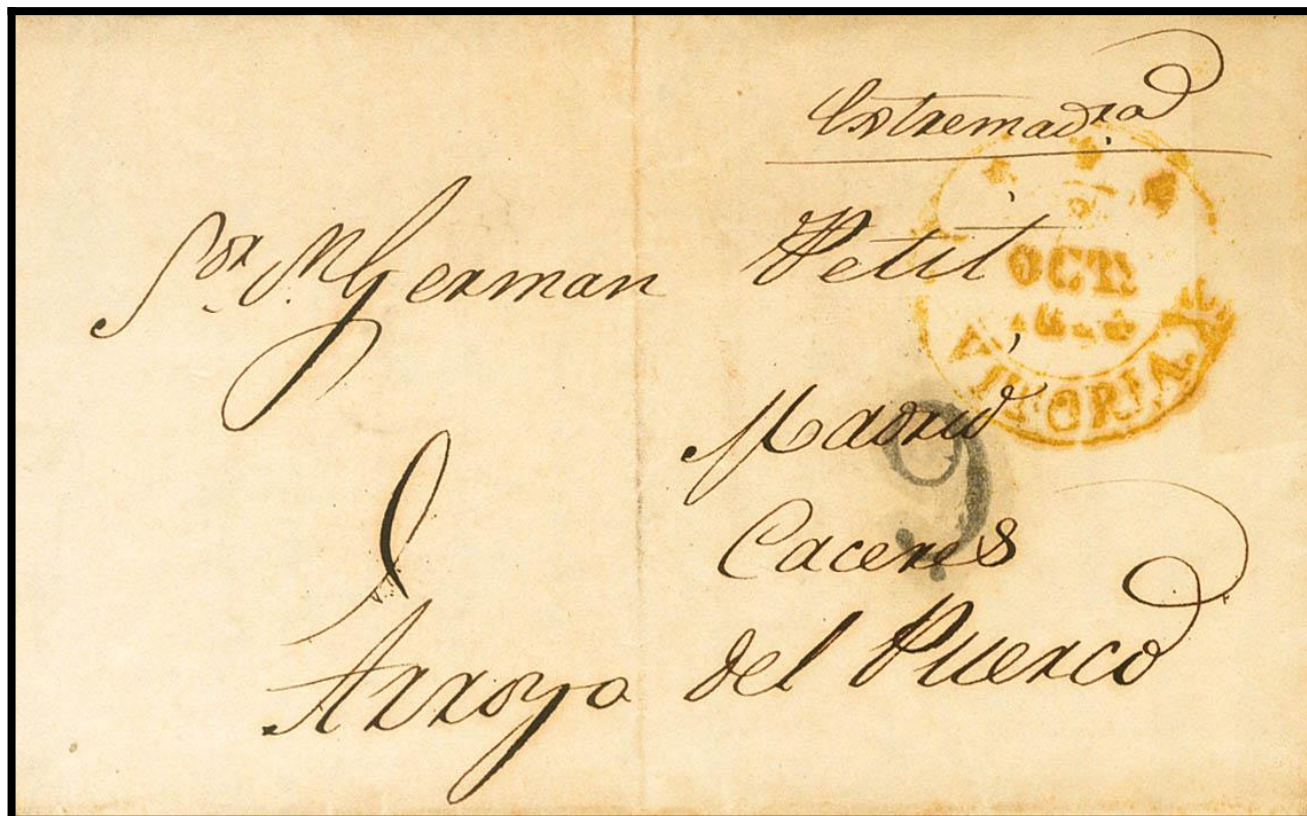 Extremadra
Sor. Dn. German Petit
OCT.
VITORIA.
Madrid
9
Caceres
Arroyo del Puerco